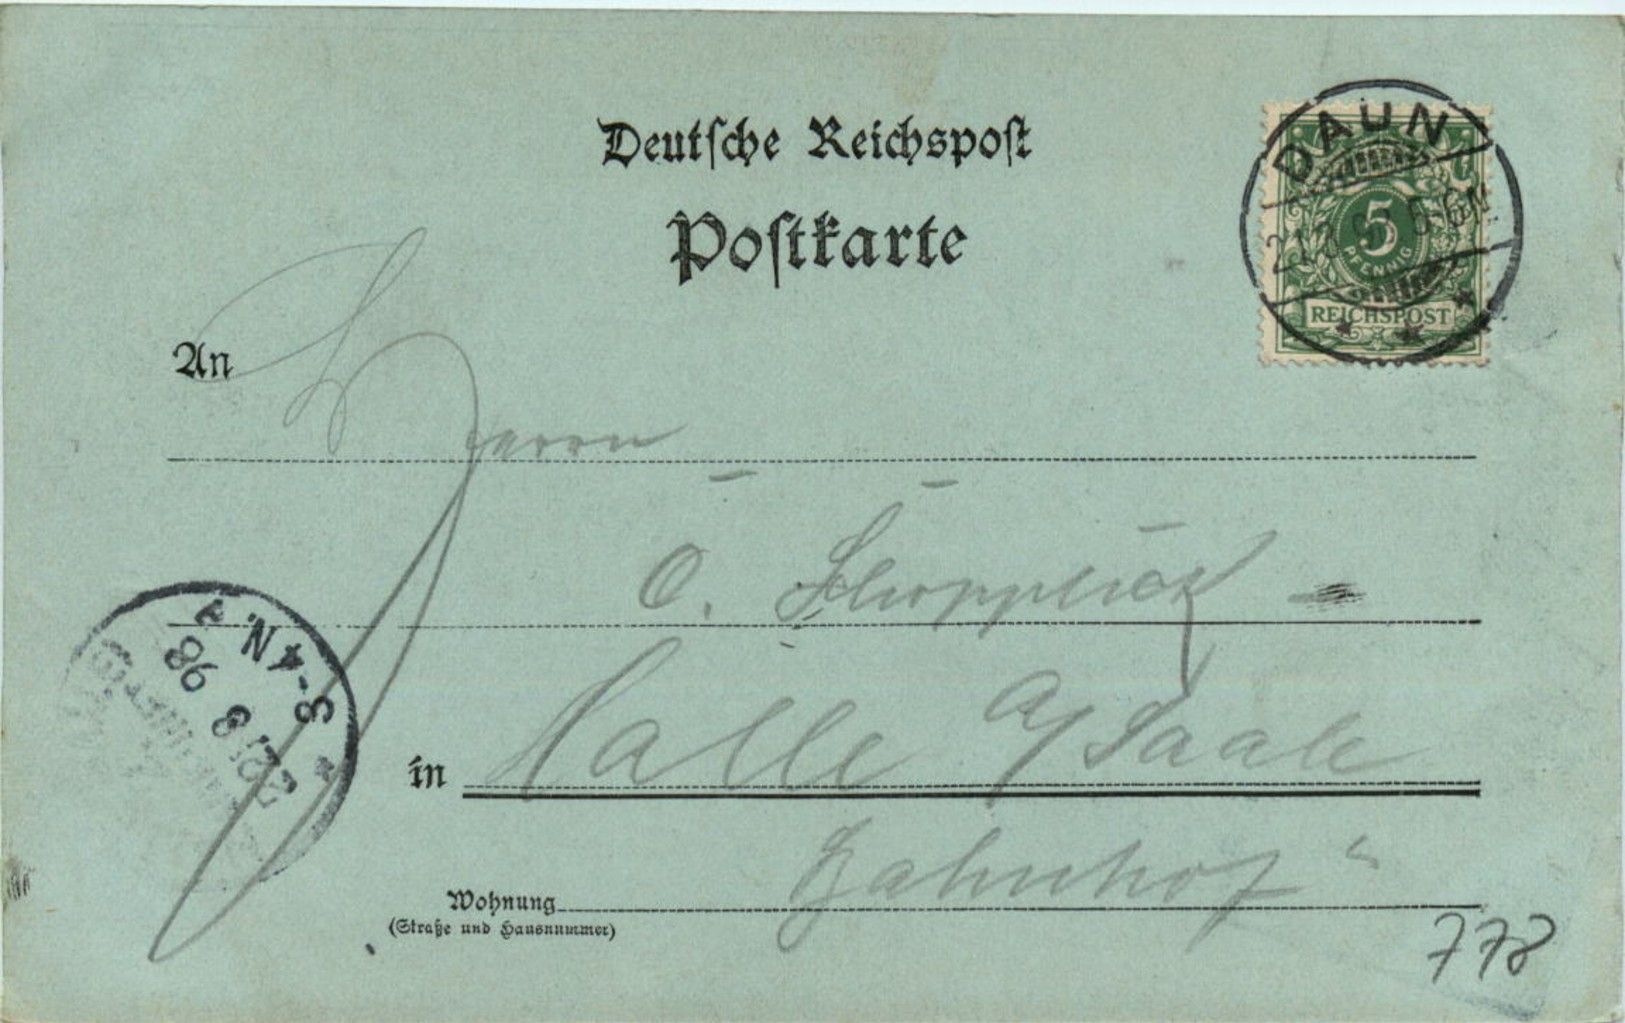 Deutsche Reichspost
Postkarte
DAUN
5-6N.
5
PFENNIG
REICHSPOST
An
Herrn
O.
in Halle a/Saale
Bahnhof
Wohnung
(Straße und Hausnummer)
3-4N.
22 8 98
778